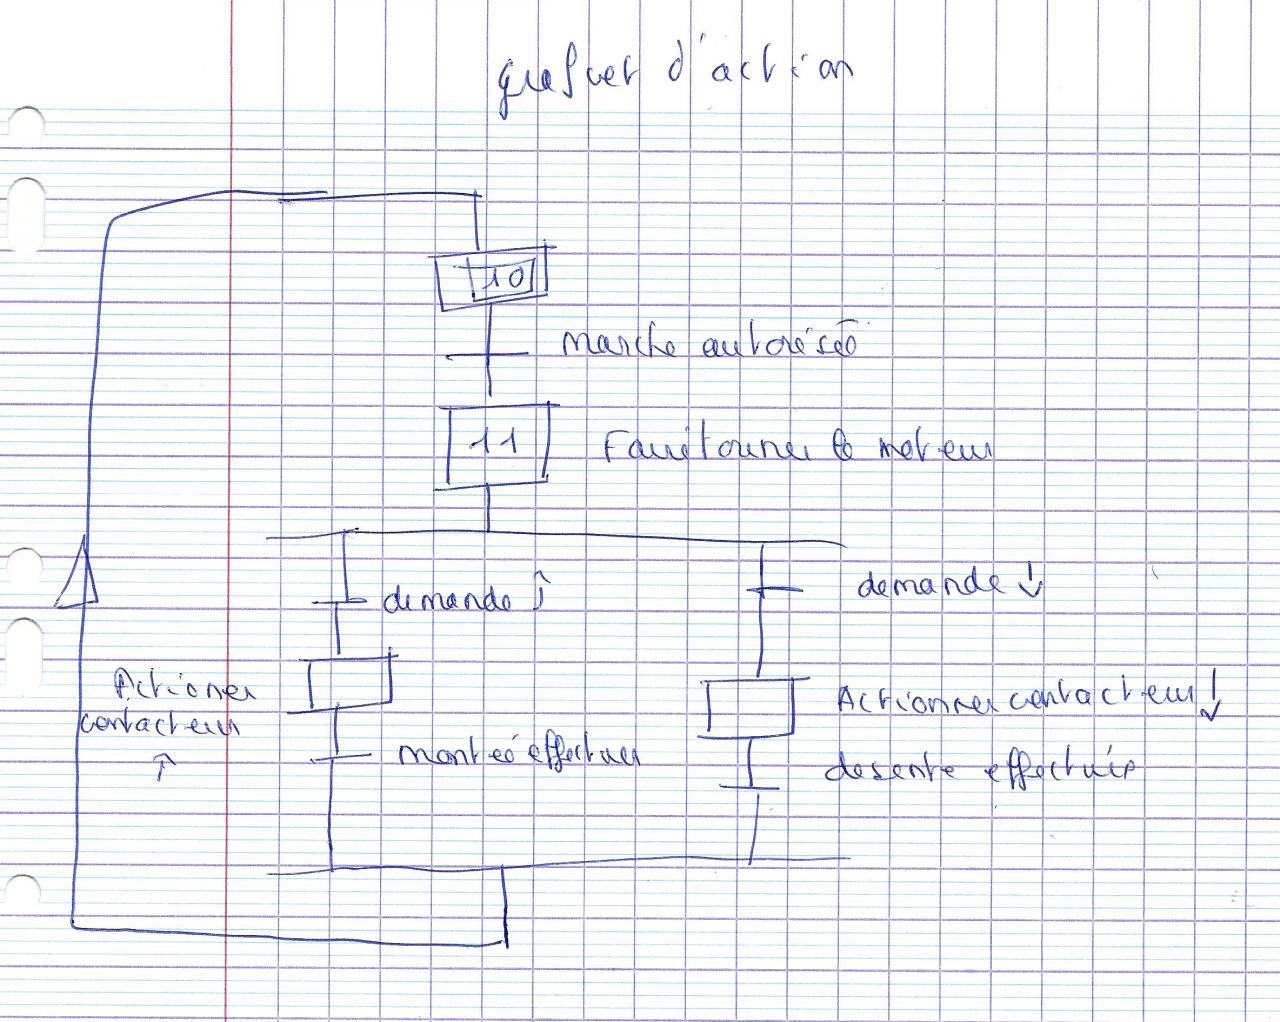 grafcet d'action
10
marche autorisée
11 Faire tourner le moteur
demande ↑ demande ↓
Actioner Actionner contacteur ↓
contacteur
↑
montée effectuer desente effectuée